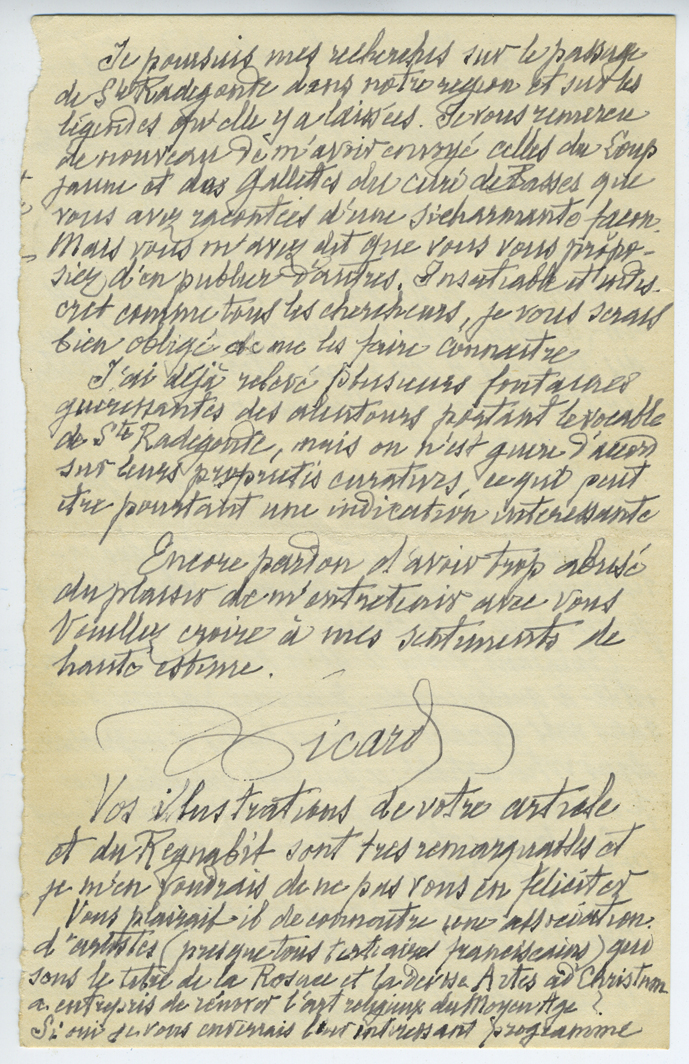 Je poursuis mes recherches sur le passage
de Ste Radegonde dans notre region et sur les
légendes qu'elle y a laissées. Je vous remercie
de nouveau de m'avoir envoyé celles du Loup
jaune et des Gallettes du curé de Basses que
vous avez racontées d'une si charmante façon.
Mais vous m'avez dit que vous vous propo-
siez d'en publier d'autres. Insatiable et indis-
cret comme tous les chercheurs, je vous serais
bien obligé de me les faire connaitre
J'ai déjà relevé plusieurs fontaines
guerissantes des alentours portant le vocable
de Ste Radegonde, mais on n'est guere d'accord
sur leurs proprietés curatives, ce qui peut
etre pourtant une indication interessante
Encore pardon d'avoir trop abusé
du plaisir de m'entretenir avec vous
Veuillez croire à mes sentiments de
haute estime.
Picard
Vos illustrations de votre article
et du Regnabit sont tres remarquables et
je m'en voudrais de ne pas vous en féliciter
Vous plairait-il de connoitre une association
d'artistes (presque tous tertiaires franciscains) qui
sous le titre de la Rosace et la devise Artes ad Christum
a entrepris de rénover l'art religieux du Moyen Age ?
Si oui je vous enverrais leur intéressant programme